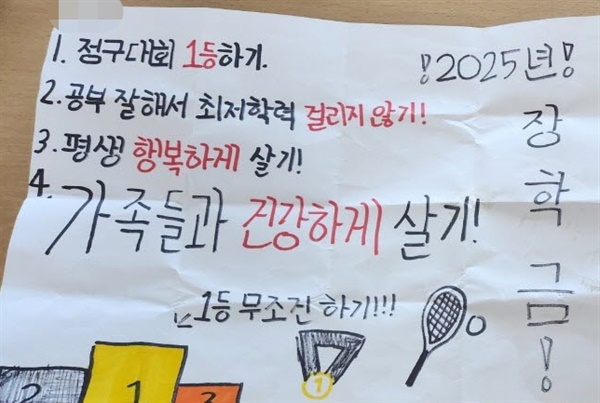 1. 정구대회 1등하기.
2. 공부 잘해서 최저학력 걸리지 않기!
3. 평생 행복하게 살기!
4. 가족들과 건강하게 살기!
1등 무조건 하기!!!
2 1 3
1
!2025년!
장학금!